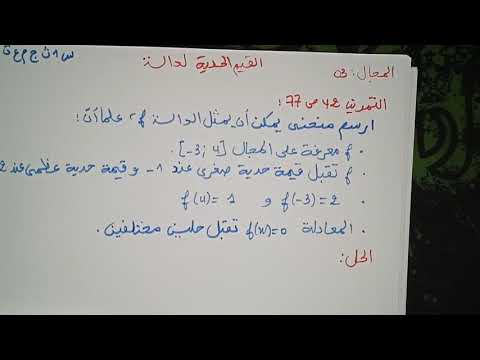 س 1 ث ج م ع ت
المجال: 03
القيم الحدية لدالة
التمرين 42 ص 77 :
ارسم منحنى يمكن أن يمثل الدالة f ، علما أن :
• f معرفة على المجال [-3; 4].
• f تقبل قيمة حدية صغرى عند 1- و قيمة حدية عظمى عند 2
f(-3)=2 و f(4)=1
• المعادلة f(x)=0 تقبل حلين مختلفين .
الحل: